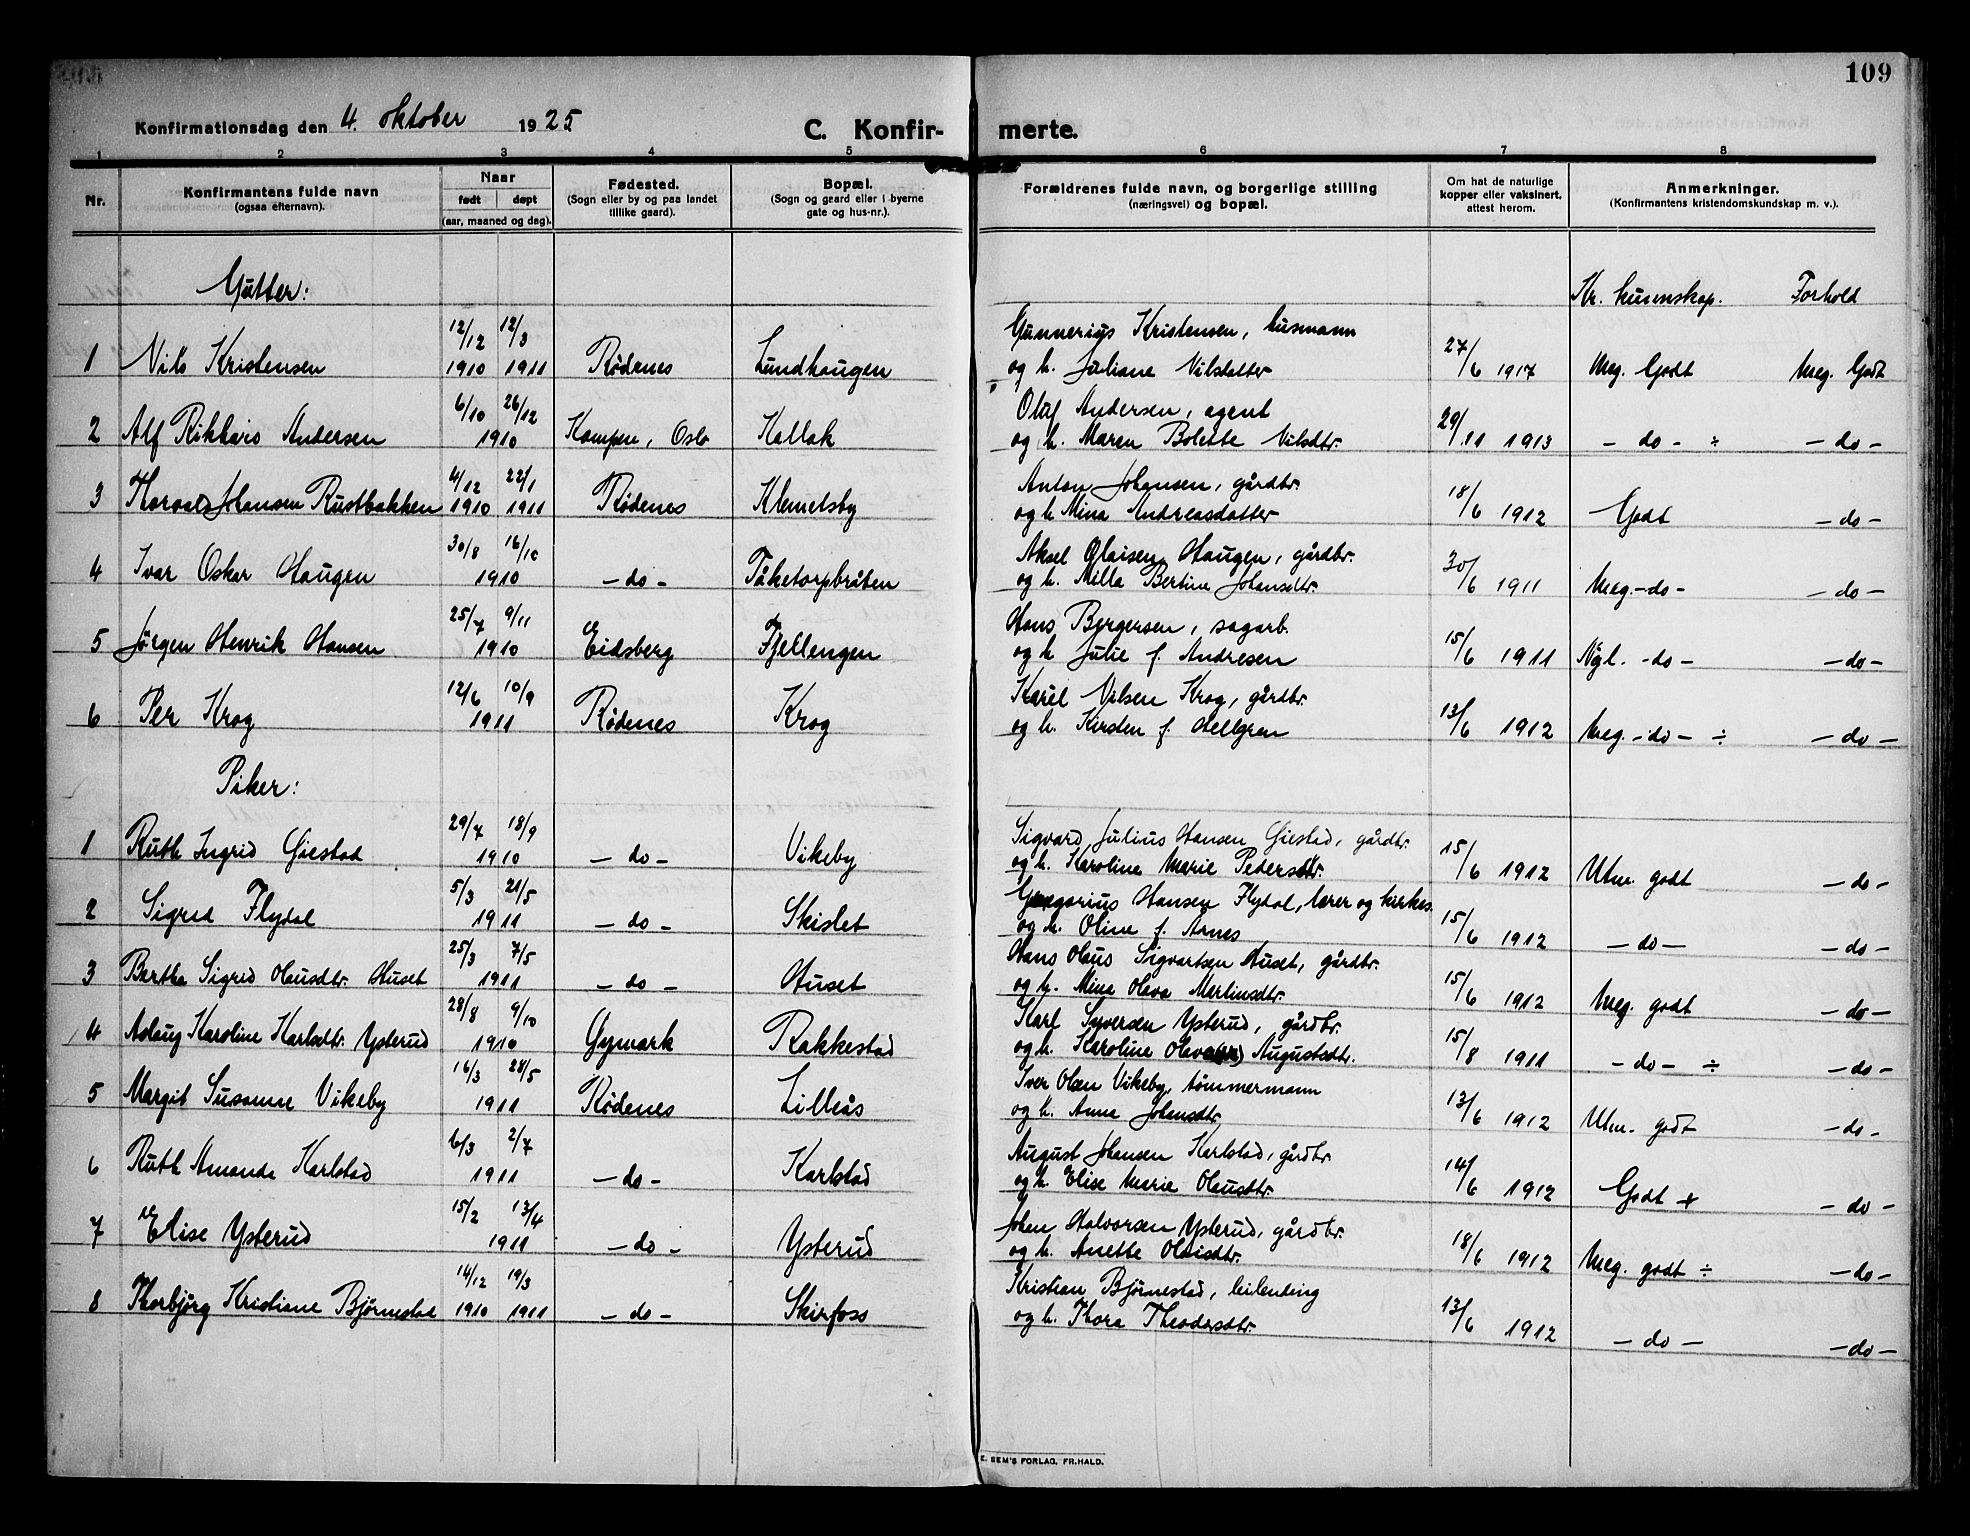 109
Konfirmationsdag den 4. oktober 1925
C. Konfirmerte.
1 2 3 4 5 6 7 8
Nr.
Konfirmantens fulde navn
(ogsaa efternavn).
Naar
født døpt
(aar, maaned og dag).
Fødested.
(Sogn eller by og paa landet
tillike gaard).
Bopæl.
(Sogn og gaard eller i byerne
gate og hus-nr.).
Forældrenes fulde navn, og borgerlige stilling
(næringsvei) og bopæl.
Om hat de naturlige
kopper eller vaksinert,
attest herom.
Anmerkninger.
(Konfirmantens kristendomskundskap m. v.).
Gutter:
Kr. kunnskap. Forhold
12/12 12/3 Gunnerius Kristensen, husmann
1 Nils Kristensen 1910 1911 Rødenes Lundhaugen og h. Juliane Nilsdatter 27/6 1917 Meg. Godt Meg. Godt
6/10 26/12 Oluf Andersen, agent
2 Alf Rikhard Andersen 1910 Kampen, Oslo Kallak og h. Maren Bolette Nilsdtr. 29/11 1913 - do - ÷ - do -
4/12 22/1 Anton Johansen, gårdbr.
3 Thorvald Johansen Rustbakken 1910 1911 Rødenes Klemetsby og h. Mina Andreasdatter 18/6 1912 Godt - do -
30/8 16/10 Aksel Olaisen Haugen, gårdbr.
4 Ivar Oskar Haugen 1910 - do - Tåketorpbråten og h. Milla Bertine Johansdtr. 30/6 1911 Meg. - do - - do -
25/7 9/11 Hans Bergersen, sagarb.
5 Jørgen Henrik Hansen 1910 Eidsberg Fjellengen og h. Julie f. Andresen 15/6 1911 Ngl. - do - - do -
12/6 10/9 Karel Nilsen Krog, gårdbr.
6 Per Krog 1911 Rødenes Krog og h. Kirsten f. Hellgren 13/6 1912 Meg. - do - ÷ - do -
Piker:
29/7 18/9 Sigvard Julius Hansen Giestad, gårdbr.
1 Ruth Ingrid Giestad 1910 - do - Vikeby og h. Karoline Marie Pedersdtr. 15/6 1912 Utm. godt - do -
5/3 21/5 Gregorius Hansen Flydal, lærer og kirkes.
2 Sigrid Flydal 1911 - do - Skislet og h. Oline f. Aanes 15/6 1912 - do - - do -
25/3 7/5 Hans Olaus Sigvartsen Huset, gårdbr.
3 Bertha Sigrid Olausdtr. Huset 1911 - do - Huset og h. Mina Olava Martinsdtr. 15/6 1912 Meg. godt - do -
28/8 9/10 Karl Syversen Ysterud, gårdbr.
4 Aslaug Karoline Karlsdtr. Ysterud 1910 Gymark Rakkestad og h. Karoline Olava Augustsdtr. 15/8 1911 - do - ÷ - do -
16/3 28/5 Iver Olsen Vikeby, tømmermann
5 Margit Susanne Vikeby 1911 Rødenes Lilleås og h. Anna Johansdtr. 13/6 1912 Utm. godt - do -
6/3 2/7 August Johansen Karlstad, gårdbr.
6 Ruth Amanda Karlstad 1911 - do - Karlstad og h. Elise Marie Olausdtr. 14/6 1912 Godt + - do -
15/2 13/4 Johan Halvorsen Ysterud, gårdbr.
7 Elise Ysterud 1911 - do - Ysterud og h. Anette Olaisdtr. 18/6 1912 Meg. godt ÷ - do -
14/12 19/3 Kristian Bjørnestad, leilending
8 Thorbjørg Kristiane Bjørnestad 1910 1911 - do - Skirfoss og h. Thora Theodorsdtr. 13/6 1912 - do - - do -
E. SEM'S FORLAG, FR.HALD.